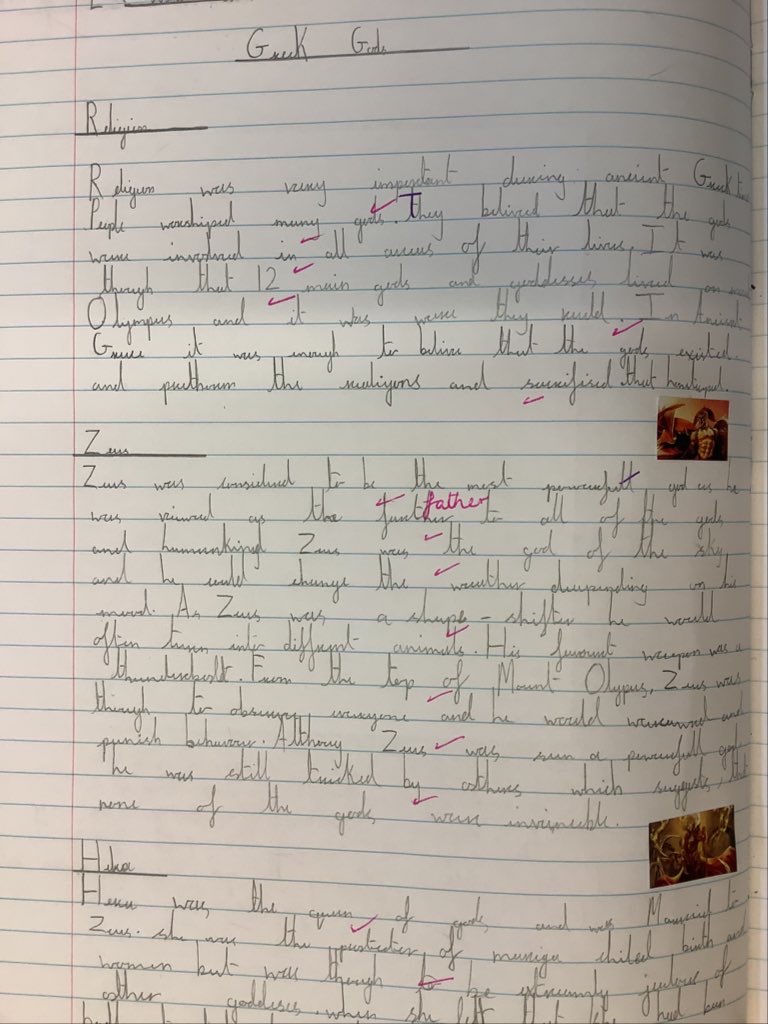 Greek Gods
Religion
Religion was very important during ancient Greek
People worshiped many gods. They belived that the gods
were involved in all areas of their lives. It was
though that 12 main gods and goddesses lived on
Olympus and it was were they ruild. In Ancient
Greece it was enough to belive that the gods existed.
and the and sacrifised that
Zeus
Zeus was considred to be the most powerfull god as he
was viewed as the father to all of the gods
father
and humankind Zeus was the god of the sky
and he could change the weather deepending on his
mood. As Zeus was a shape-shifter he would
often turn into diffrent animals. His favourit weapon was a
thunderbolt. From the top of Mount Olypus, Zeus was
though to observe everyone and he would and
punish behavour. Althoug Zeus was seen a powerfull god
he was still tricked by others which suggests, that
none of the gods were
Hera
Hera was, the queen of gods and was Marrried to
Zeus. she was the of birth and
women but was though to be extremmly jealous of
other goddeses. when she felt that had been